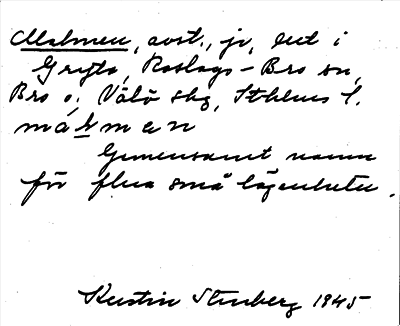 Malmen, avst., jo, del i
Gryta, Roslags-Bro sn,
Bro o. Välö skg, Sthlms l.
målmen
Gemensamt namn
för flera små lägenheter.
Kerstin Stenberg 1945